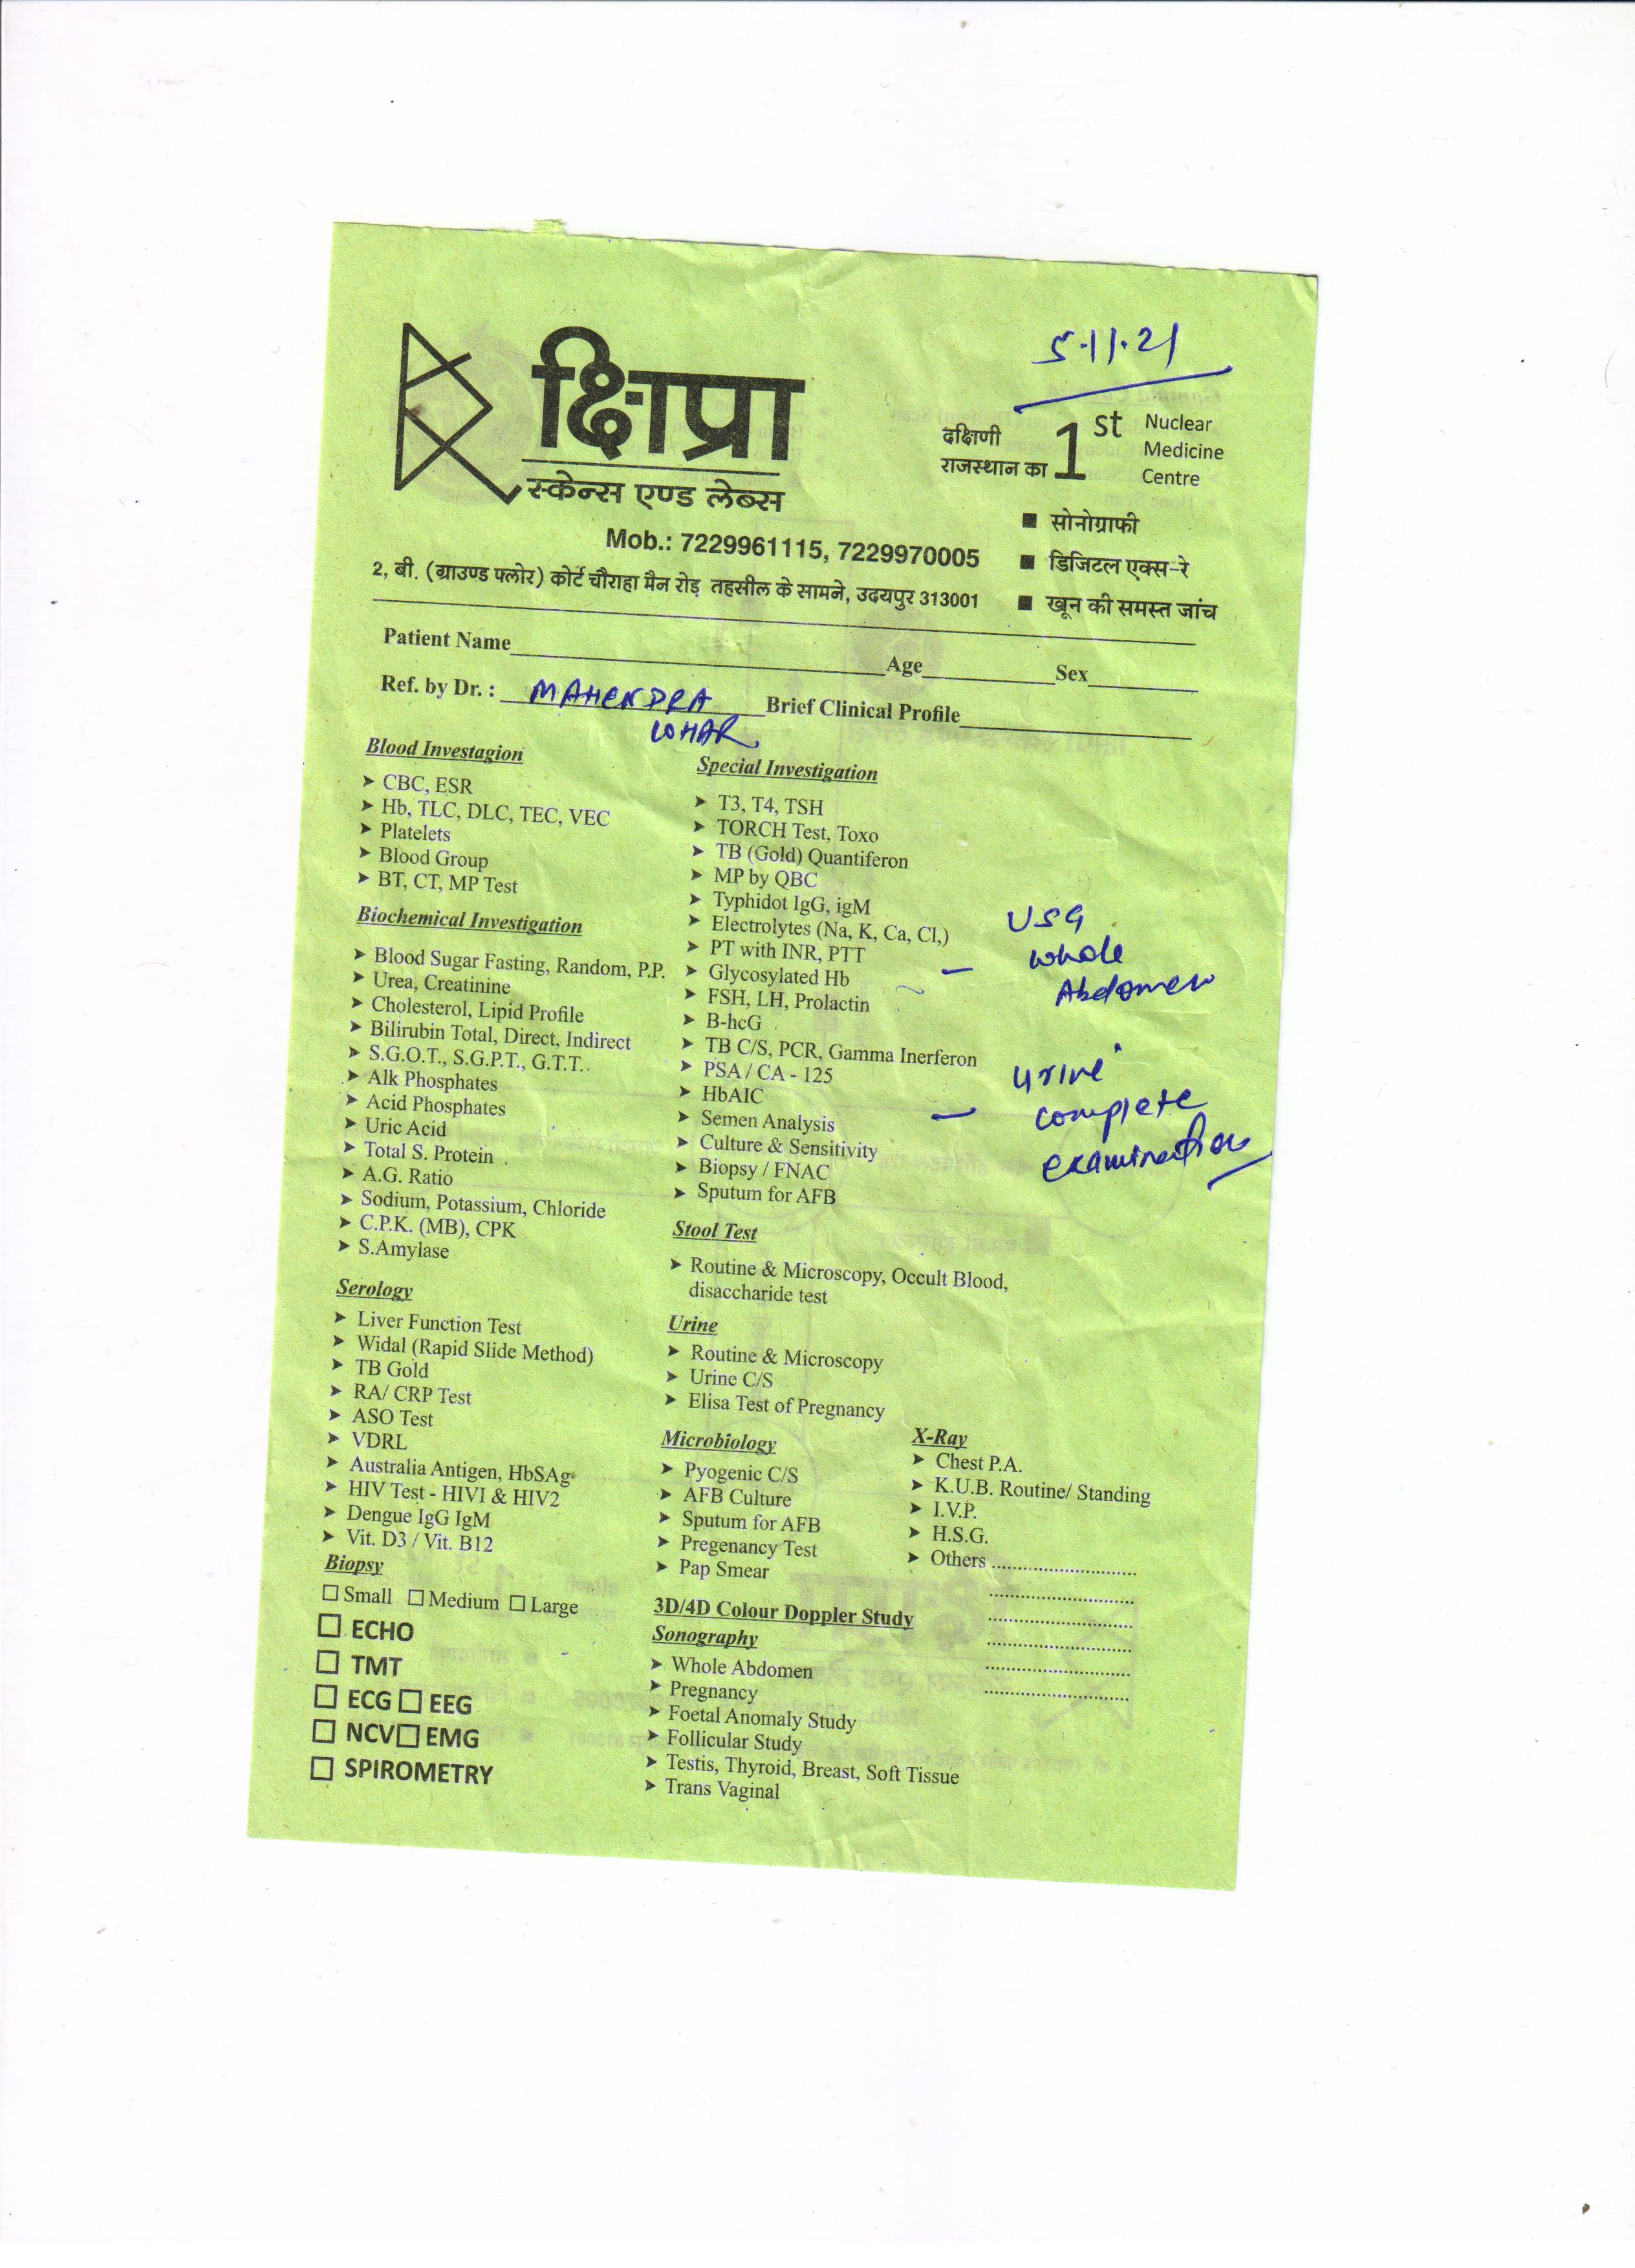 5.11.21
क्षिप्रा
स्केन्स एण्ड लेब्स
दक्षिणी
राजस्थान का 1st Nuclear Medicine Centre
Mob.: 7229961115, 7229970005
2, बी. (ग्राउण्ड फ्लोर) कोर्ट चौराहा मैन रोड़ तहसील के सामने, उदयपुर 313001
■ सोनोग्राफी
■ डिजिटल एक्स-रे
■ खून की समस्त जांच
Patient Name Age Sex
Ref. by Dr. : MAHENDRA Brief Clinical Profile
LOHAR
Blood Investagion
➤ CBC, ESR
➤ Hb, TLC, DLC, TEC, VEC
➤ Platelets
➤ Blood Group
➤ BT, CT, MP Test
Biochemical Investigation
➤ Blood Sugar Fasting, Random, P.P.
➤ Urea, Creatinine
➤ Cholesterol, Lipid Profile
➤ Bilirubin Total, Direct, Indirect
➤ S.G.O.T., S.G.P.T., G.T.T.
➤ Alk Phosphates
➤ Acid Phosphates
➤ Uric Acid
➤ Total S. Protein
➤ A.G. Ratio
➤ Sodium, Potassium, Chloride
➤ C.P.K. (MB), CPK
➤ S.Amylase
Serology
➤ Liver Function Test
➤ Widal (Rapid Slide Method)
➤ TB Gold
➤ RA/ CRP Test
➤ ASO Test
➤ VDRL
➤ Australia Antigen, HbSAg
➤ HIV Test - HIVI & HIV2
➤ Dengue IgG IgM
➤ Vit. D3 / Vit. B12
Biopsy
☐ Small ☐ Medium ☐ Large
☐ ECHO
☐ TMT
☐ ECG ☐ EEG
☐ NCV ☐ EMG
☐ SPIROMETRY
Special Investigation
➤ T3, T4, TSH
➤ TORCH Test, Toxo
➤ TB (Gold) Quantiferon
➤ MP by QBC
➤ Typhidot IgG, igM
➤ Electrolytes (Na, K, Ca, Cl,)
➤ PT with INR, PTT
➤ Glycosylated Hb
➤ FSH, LH, Prolactin
➤ B-hcG
➤ TB C/S, PCR, Gamma Inerferon
➤ PSA / CA - 125
➤ HbAIC
➤ Semen Analysis
➤ Culture & Sensitivity
➤ Biopsy / FNAC
➤ Sputum for AFB
Stool Test
➤ Routine & Microscopy, Occult Blood,
disaccharide test
Urine
➤ Routine & Microscopy
➤ Urine C/S
➤ Elisa Test of Pregnancy
Microbiology
➤ Pyogenic C/S
➤ AFB Culture
➤ Sputum for AFB
➤ Pregenancy Test
➤ Pap Smear
3D/4D Colour Doppler Study
Sonography
➤ Whole Abdomen
➤ Pregnancy
➤ Foetal Anomaly Study
➤ Follicular Study
➤ Testis, Thyroid, Breast, Soft Tissue
➤ Trans Vaginal
X-Ray
➤ Chest P.A.
➤ K.U.B. Routine/ Standing
➤ I.V.P.
➤ H.S.G.
➤ Others ..............................
USG
– whole
Abdomen
urine
– complete
examination